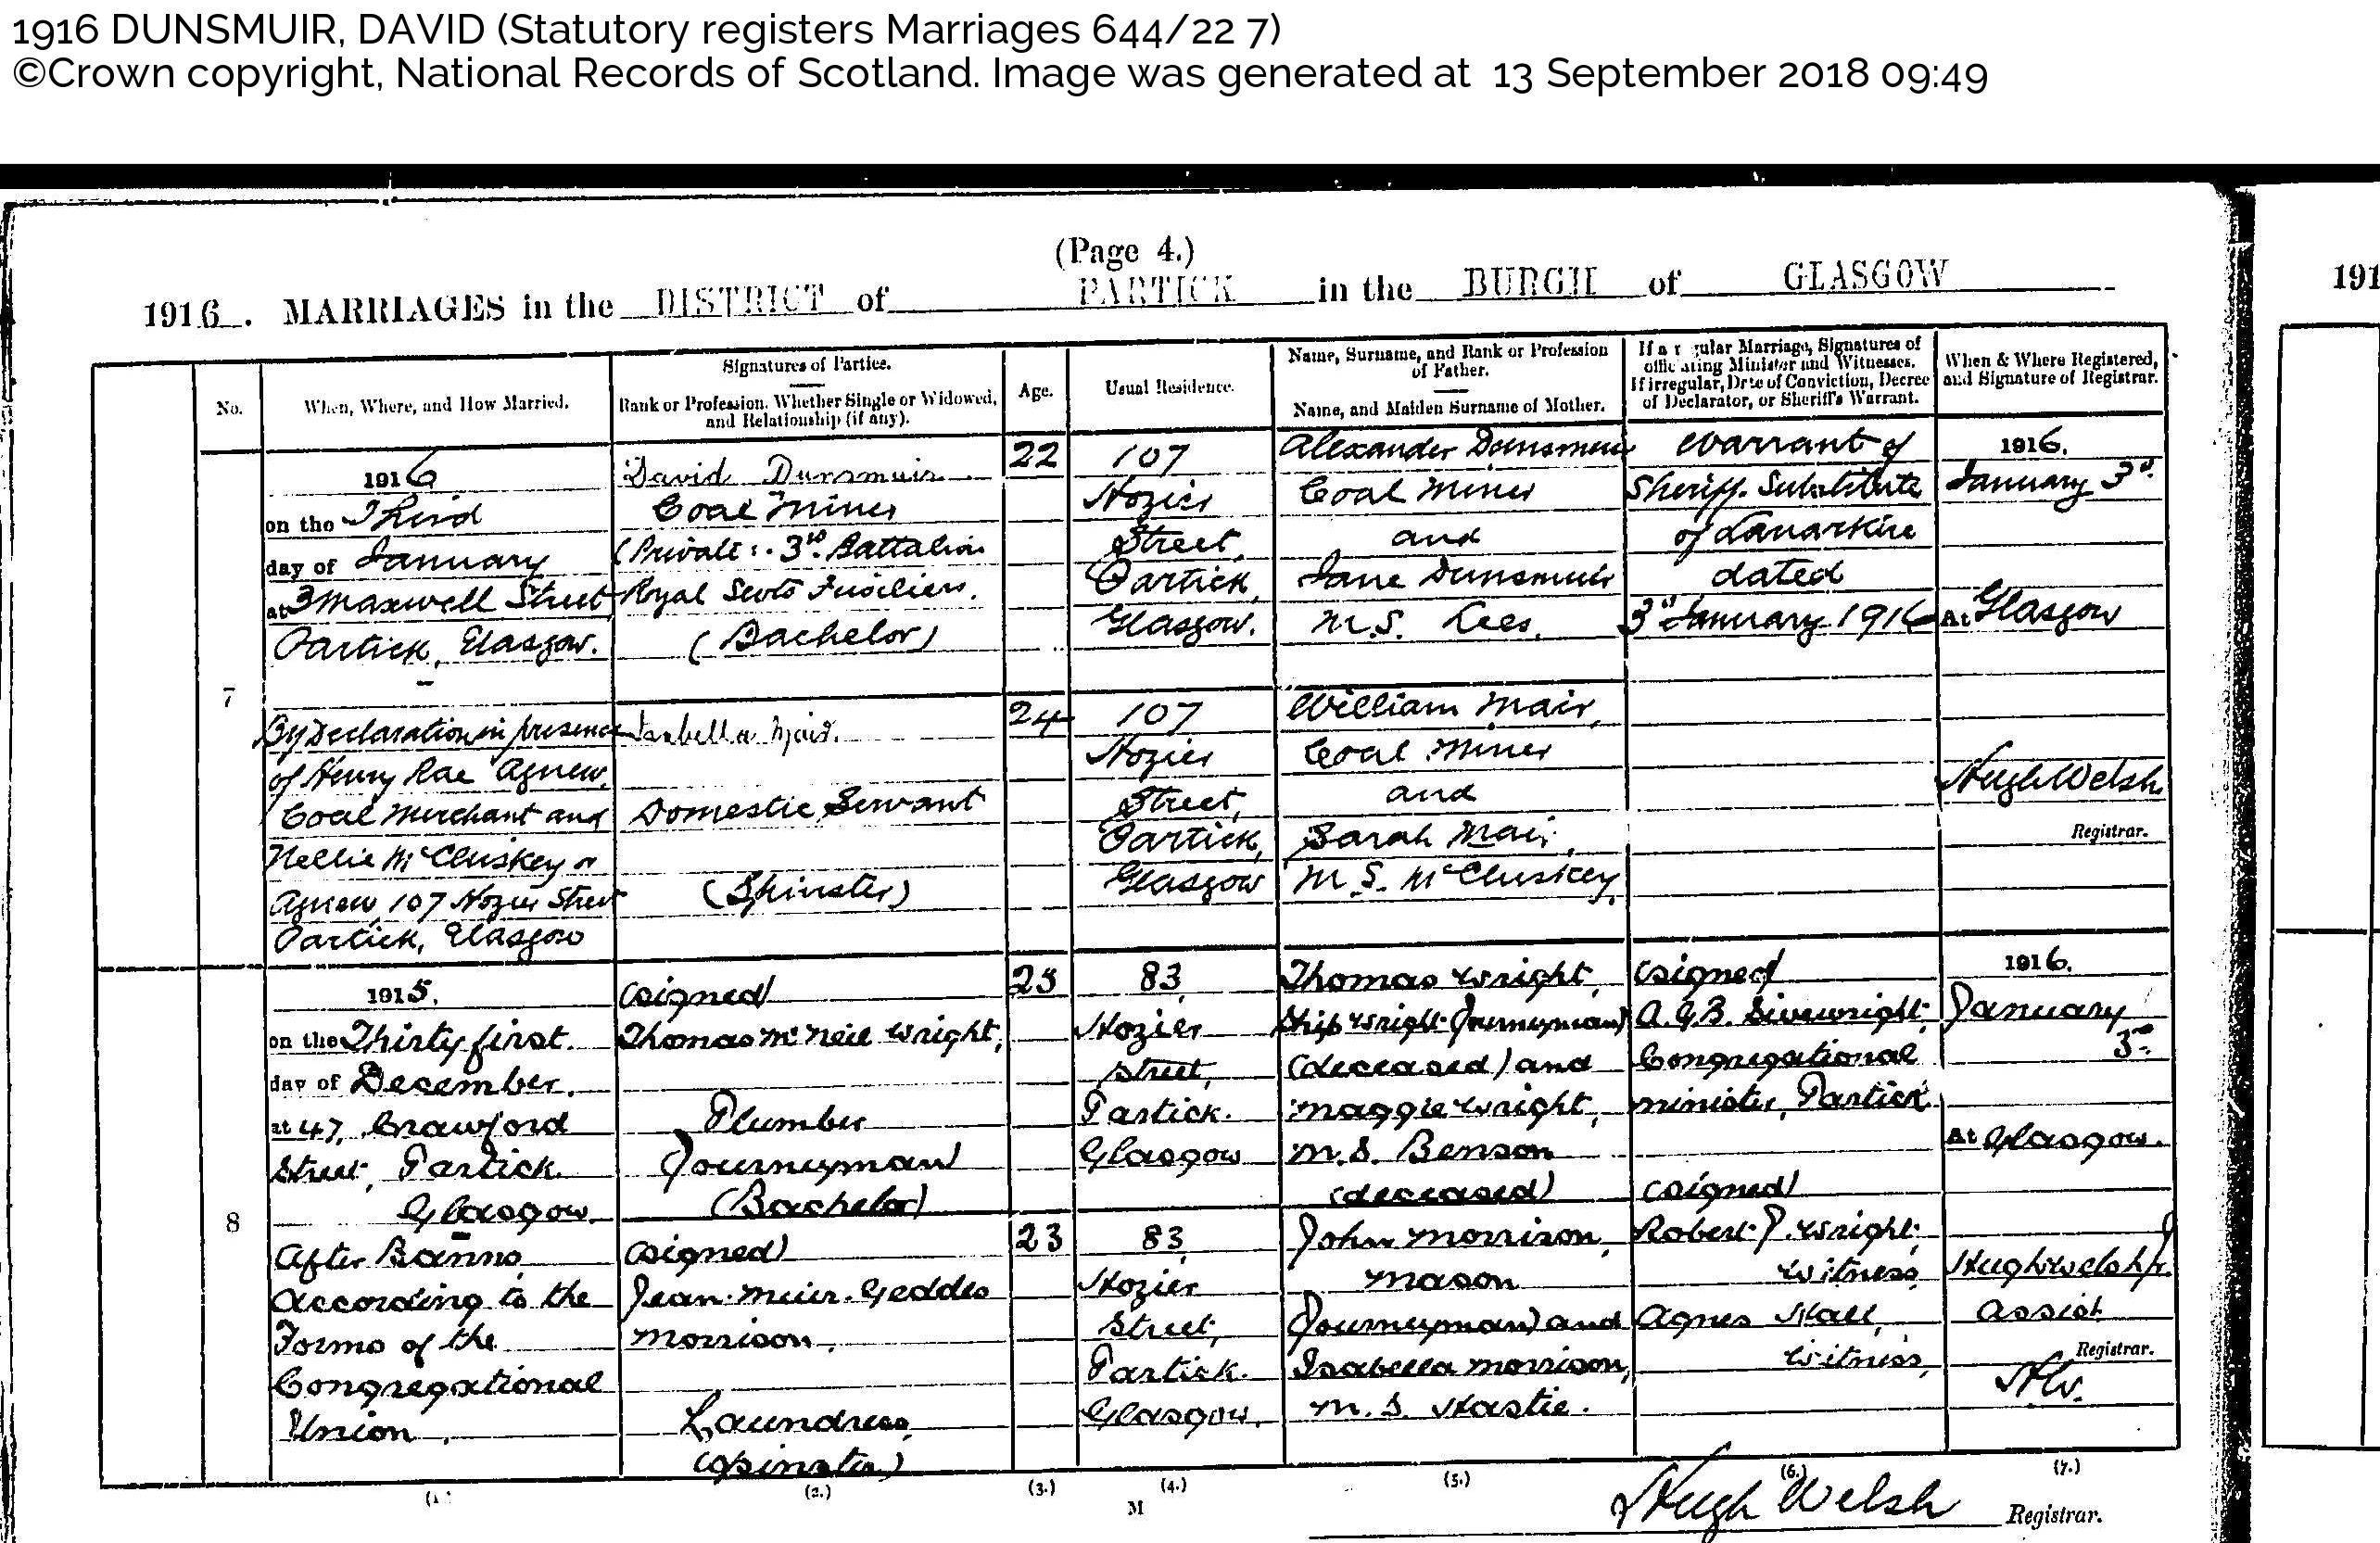 1916 DUNSMUIR, DAVID (Statutory registers Marriages 644/22 7)
©Crown copyright, National Records of Scotland. Image was generated at 13 September 2018 09:49
(Page 4.)
1916. MARRIAGES in the DISTRICT of PARTICK in the BURGH of GLASGOW
191
No.
When, Where, and How Married.
Signatures of Parties.
Rank or Profession, Whether Single or Widowed,
and Relationship (if any).
Age.
Usual Residence.
Name, Surname, and Rank or Profession
of Father.
Name, and Maiden Surname of Mother.
If a r gular Marriage, Signatures of
officiating Minister and Witnesses.
If irregular, Date of Conviction, Decree
of Declarator, or Sheriff's Warrant.
When & Where Registered,
and Signature of Registrar.
7
1916
on the Third
day of January
at 3 Maxwell Street
Partick, Glasgow.
By Declaration in presence
of Henry Rae Agnew,
Coal Merchant and
Nellie McCluskey or
Agnew, 107 Hozier Street
Partick, Glasgow
David Dunsmuir
Coal Miner
(Private: 3rd Battalion
Royal Scots Fusiliers.
(Bachelor)
Isabella Mair.
Domestic Servant
(Spinster)
22
24
107
Hozier
Street,
Partick,
Glasgow.
107
Hozier
Street,
Partick,
Glasgow
Alexander Dunsmuir
Coal Miner
and
Jane Dunsmuir
M.S. Lees.
William Mair,
Coal Miner
and
Sarah Mair,
M.S. McCluskey.
Warrant of
Sheriff Substitute
of Lanarkire
dated
3rd January 1916
1916.
January 3rd
At Glasgow
Hugh Welsh
Registrar.
8
1915.
on the Thirty first.
day of December.
at 47, Crawford
Street, Partick
Glasgow.
After Banns,
According to the
Forms of the
Congregational
Union.
(signed)
Thomas McNeil Wright,
Plumber
Journeyman
(Bachelor)
(signed)
Jean Muir Geddes
Morrison,
Laundress,
(Spinster)
23
83,
Hozier
Street,
Partick.
Glasgow
83,
Hozier
Street,
Partick.
Glasgow.
Thomas Wright,
Ship Wright (Journeyman)
(deceased) and
Maggie Wright,
M.S. Benson
(deceased)
John Morrison,
Mason
(Journeyman) and
Isabella Morrison,
M.S. Hastie.
(signed)
A.G.B. Sivewright,
Congregational
minister, Partick
(signed)
Robert J. Wright,
Witness,
Agnes Hall,
Witness,
1916.
January
3rd
At Glasgow.
Hugh Welsh Jr.
Assist
Registrar.
H.W.
(2.)
(3.)
(4.)
(5.)
(6.)
(7.)
M
Hugh Welsh Registrar.